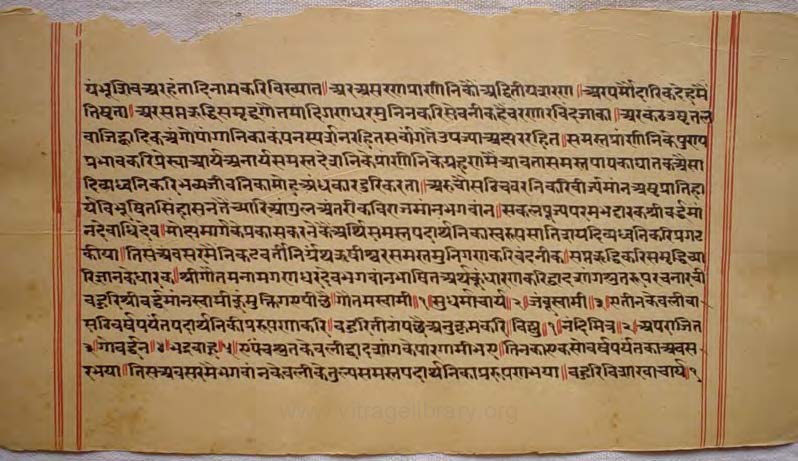 यंभूजिव अरहंतादिनामकरिविख्यात॥ अर असरणप्राणीनिकौं अद्वितीयशरण॥ अर परमौदारिकदेहमैं
तिष्टता॥ अर सप्तऋद्धिसमृद्धगौतमादिगणधरमुनिनकरिसेवनीकहैचरणारविंदजाका॥ अर कंठउष्टतल
वाजिह्वादिक अंगोपांगनिका कंपनस्पर्शनरहितसर्वांगतैउपज्या अक्षररहित॥ समस्तप्राणीनिकेपुण्य
प्रभावकरिप्रेस्वा आर्य अनार्यसमस्तदेशनिकेप्राणीनिकेग्रहणमैं आवतासमस्तपापकाघातक ऐसा
दिव्यध्वनिकरिभव्यजीवनिकामोह अंधकारदूरिकरता॥ अरुचौसठिचवरनिकरिवीर्ज्यमांन अष्टप्रातिहा
र्यविभूषितसिंहासनतैंच्यारि आंगुल अंतरीकविराजमांनभगवांन॥ सकलपूज्यपरमभट्टारकश्रीवर्द्धमां
नदेवाधिदेव॥ मोक्षमार्गकेप्रकासकरनेकेअर्थिसमस्तपदार्थनिकास्वरूपसातिशयदिव्यध्वनिकरिप्रगट
कीया॥ तिस अवसरमैंनिकटवर्तीनिर्ग्रंथऋषीश्वरसमस्तमुनिगणकरिवंदनीक॥ सप्तऋद्धिकरिसमृद्धिच्या
रिज्ञानकेधारक॥ श्रीगौतमनामगणधरदेवभगवांनभाषित अर्थकूंधारणकरिद्वादशांगश्रुतरूपरचनारची
बहुरिश्रीवर्द्धमांनस्वामीकूंमुक्तिगएपीछै॥ गौतमस्वामी॥१॥ सुधर्माचार्य॥२॥ जंबूस्वामी॥३॥ एतीनकेवलीबा
सठिवर्षपर्यंतपदार्थनिकीप्ररूपणाकरि॥ बहुरितीनांपछै अनुक्रमकरि विष्णु॥१॥ नंदिमित्र॥२॥ अपराजित
३॥ गोवर्द्धन॥४॥ भद्रबाहु॥५॥ एपंचश्रुतकेवलीद्वादशांगकेपारगामीभए॥ तिनकाएकसोवर्षपर्यंतका अवस
रभया॥ तिस अवसरमैंभगवांनकेवलीकेतुल्यसमस्तपदार्थनिकाप्ररूपणाभया॥ बहुरिविशाखाचार्य॥१
www.vitragelibrary.org